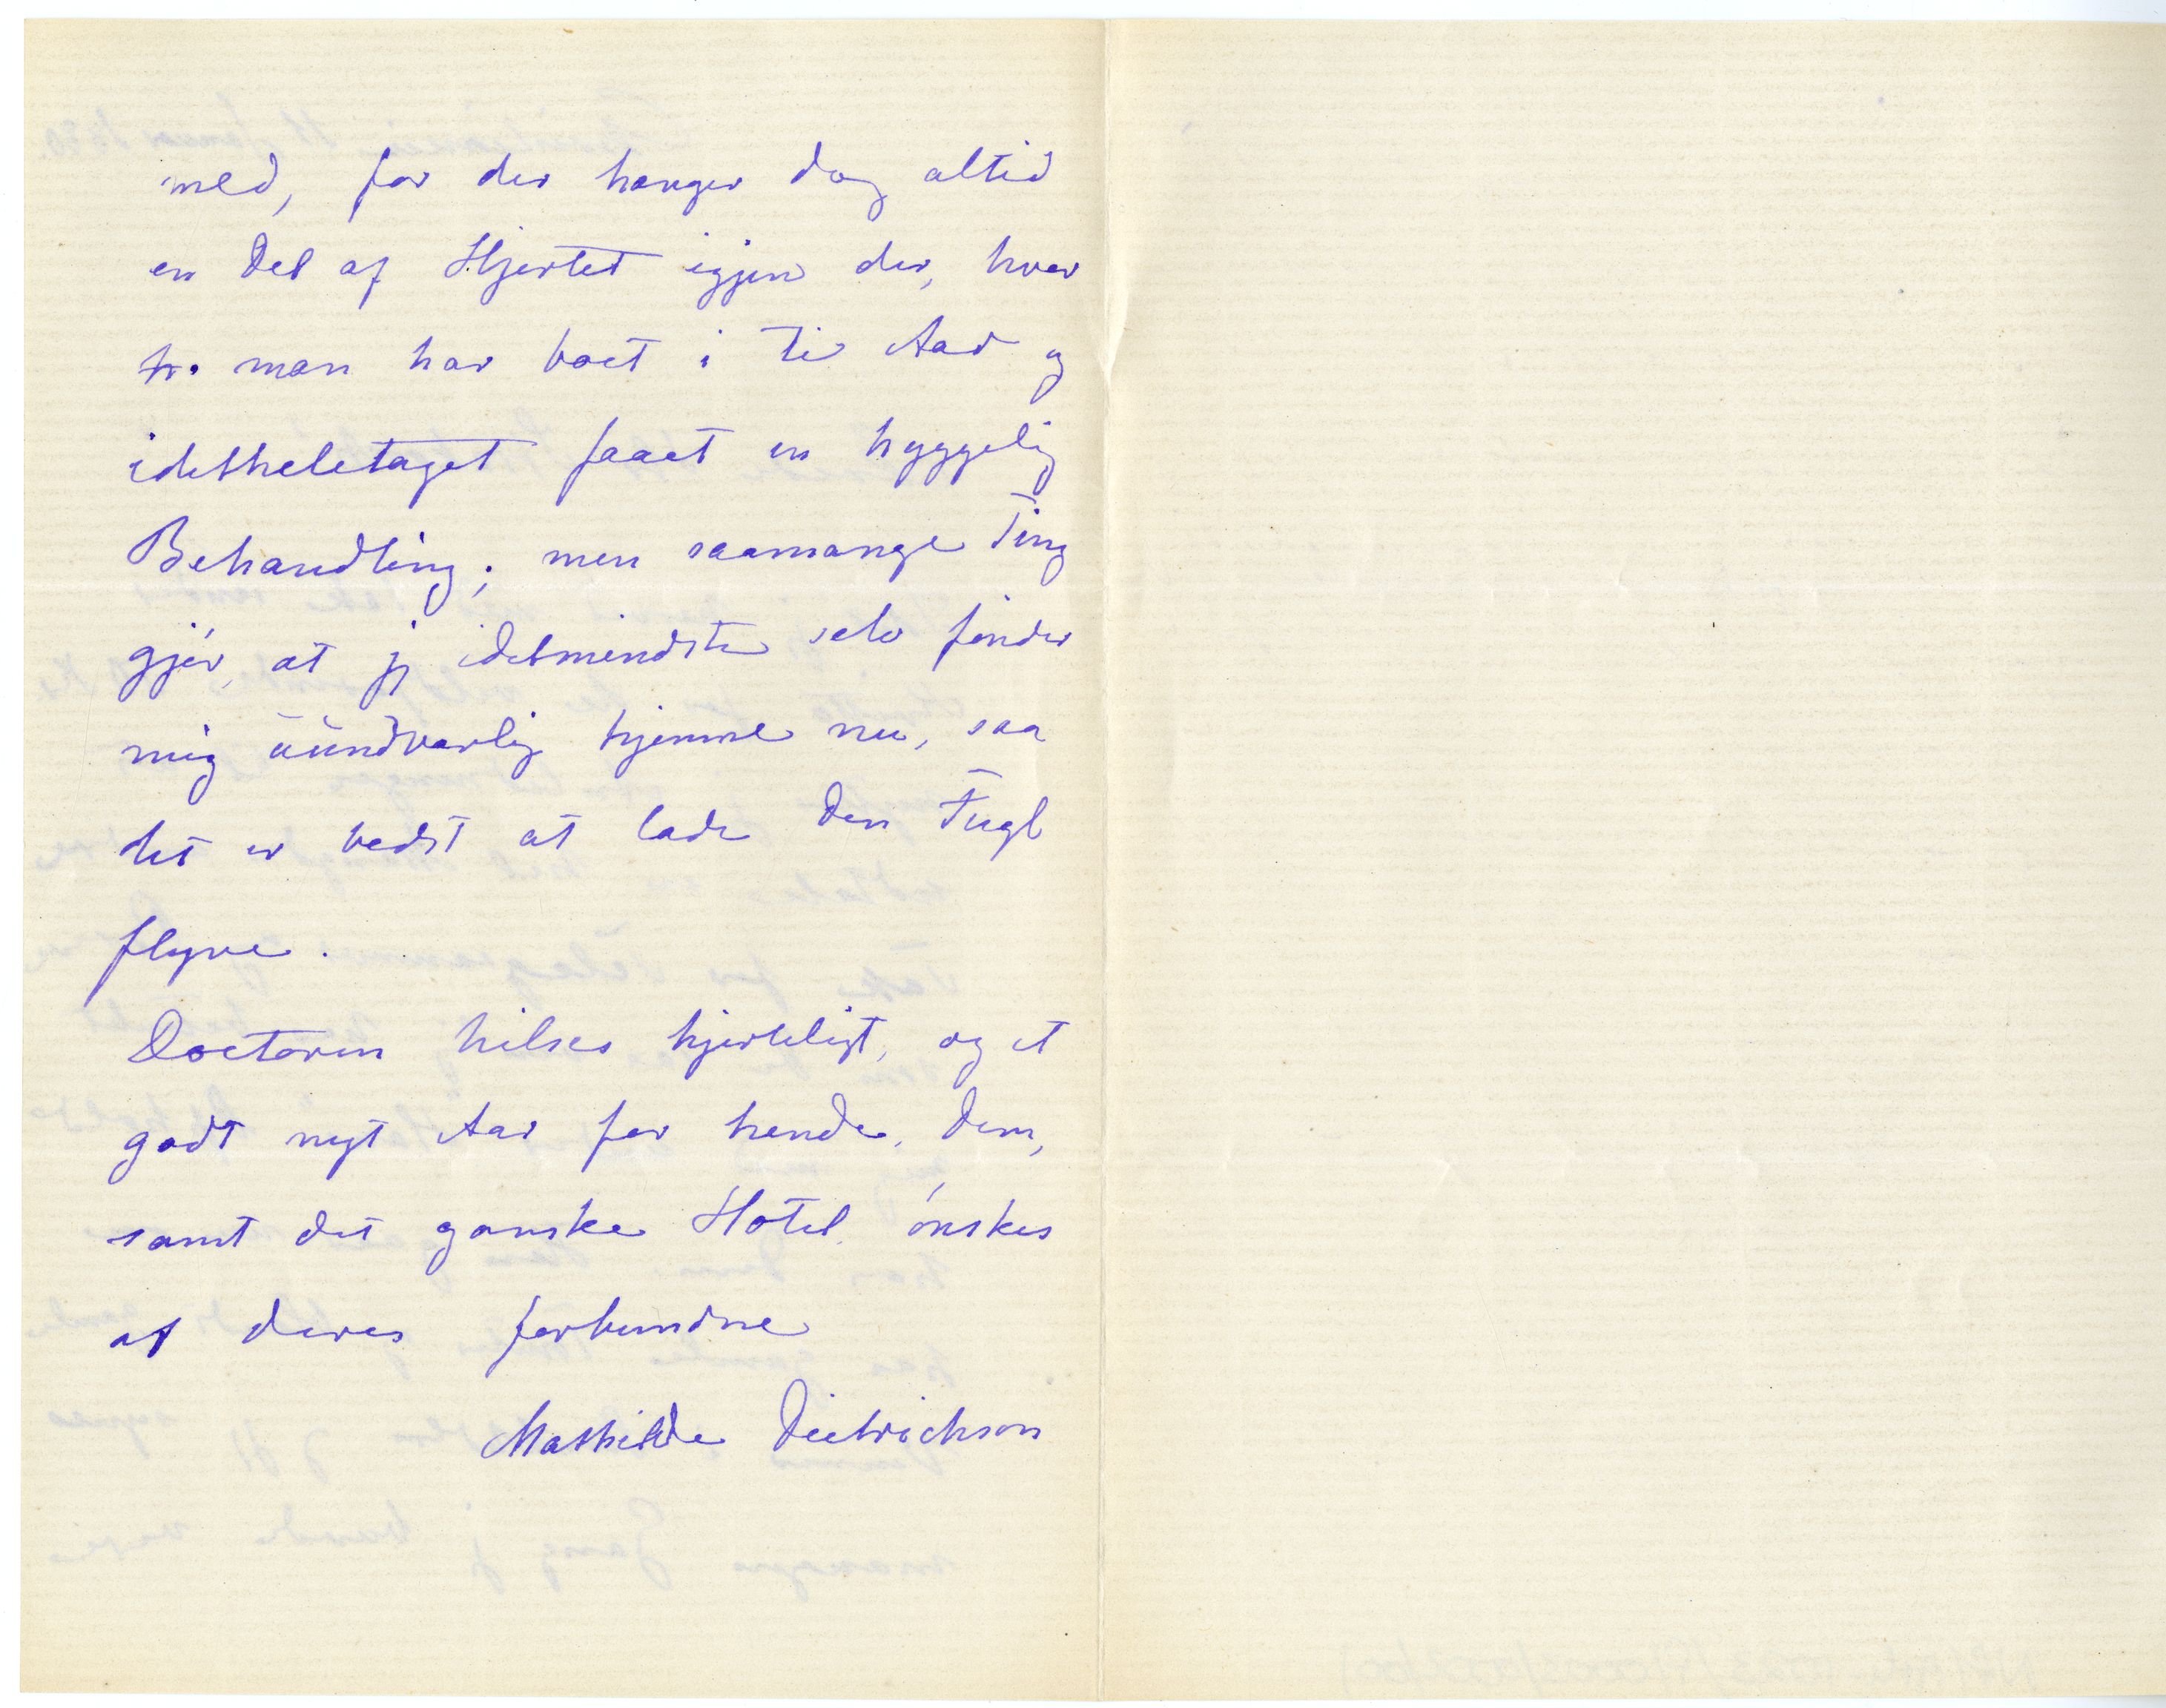 med, for der hænger dog altid
en Del af Hjertet igjen der, hvor
man har boet i ti Aar og
idetheletaget faaet en hyggelig
Behandling; men saamange Ting
gjør, at jeg idetmindste selv finder
mig uundværlig hjemme nu, saa
det er bedst at lade den Fugl
flyve.
Doctoren hilses hjerteligt, og et
godt nyt Aar for hende, Dem,
samt det ganske Hotel ønskes
af deres forbundne
Mathilde Dietrichson